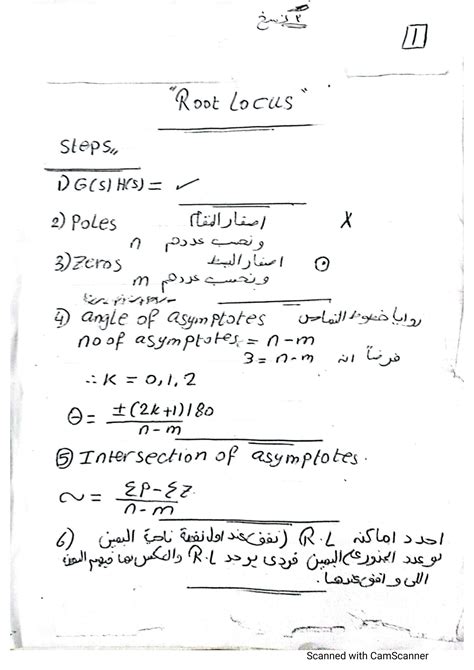 1
"Root Locus"
Steps,,
1) G(s) H(s) = ✓
2) Poles اصفار المقام X
ونحسب عددهم n
3) Zeros اصفار البسط ⊙
ونحسب عددهم m
4) angle of asymptotes زوايا خطوط التماس
no of asymptotes = n-m
فرضاً ان 3 = n-m
∴ K = 0, 1, 2
θ = ±(2k+1)180 / n-m
5) Intersection of asymptotes.
~ = ΣP-ΣZ / n-m
6) احدد اماكن R.L (نقف عند اول نقطة ناحية اليمين
لو عدد الجذور على اليمين فردى يوجد R.L والعكس بما فيهم
اللى واقف عندها.
Scanned with CamScanner